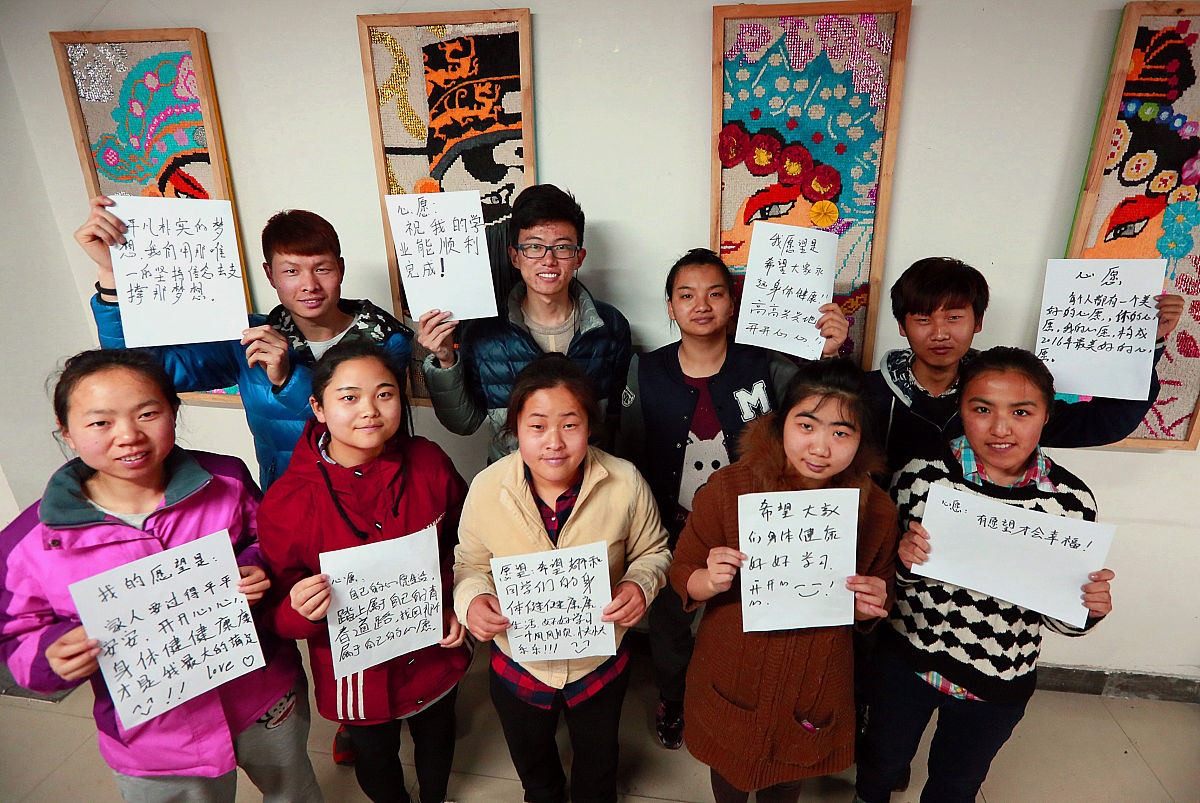 平凡朴实的梦
想,我们用那唯
一的坚持信念去支
撑那梦想.
心愿:
祝我的学
业能顺利
完成!
我愿望是
希望大家永
远身体健康!!
高高兴兴地
开开心心!!
心愿
每个人都有一个美
好的心愿,你的心
愿,我的心愿,构成
2016年最美好的心
愿。
M
我的愿望是:
家人要过得平平
安安,开开心心,
身体健健康康
才是我最大的满足
!! love
心愿:
自己的心愿生活,
踏上属于自己的青
春道路,找回那份
属于自己的心愿.
愿望:希望 和
同学们的身
体健健康康.
生活 好好学习
一帆风顺,快快
乐乐!!!
希望大家
们身体健康
好好学习.
开开心
心.
心愿: 有愿望才会幸福!